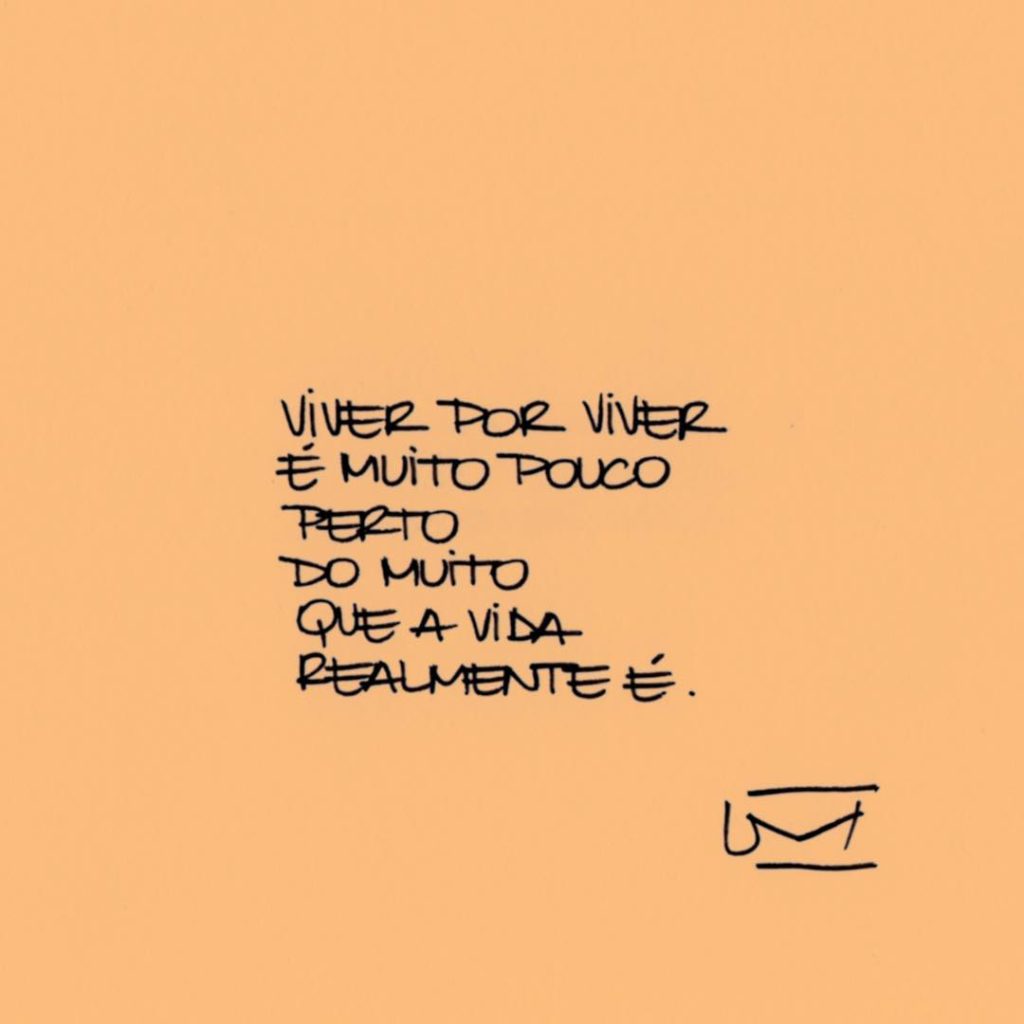 VIVER POR VIVER
É MUITO POUCO
PERTO
DO MUITO
QUE A VIDA
REALMENTE É.